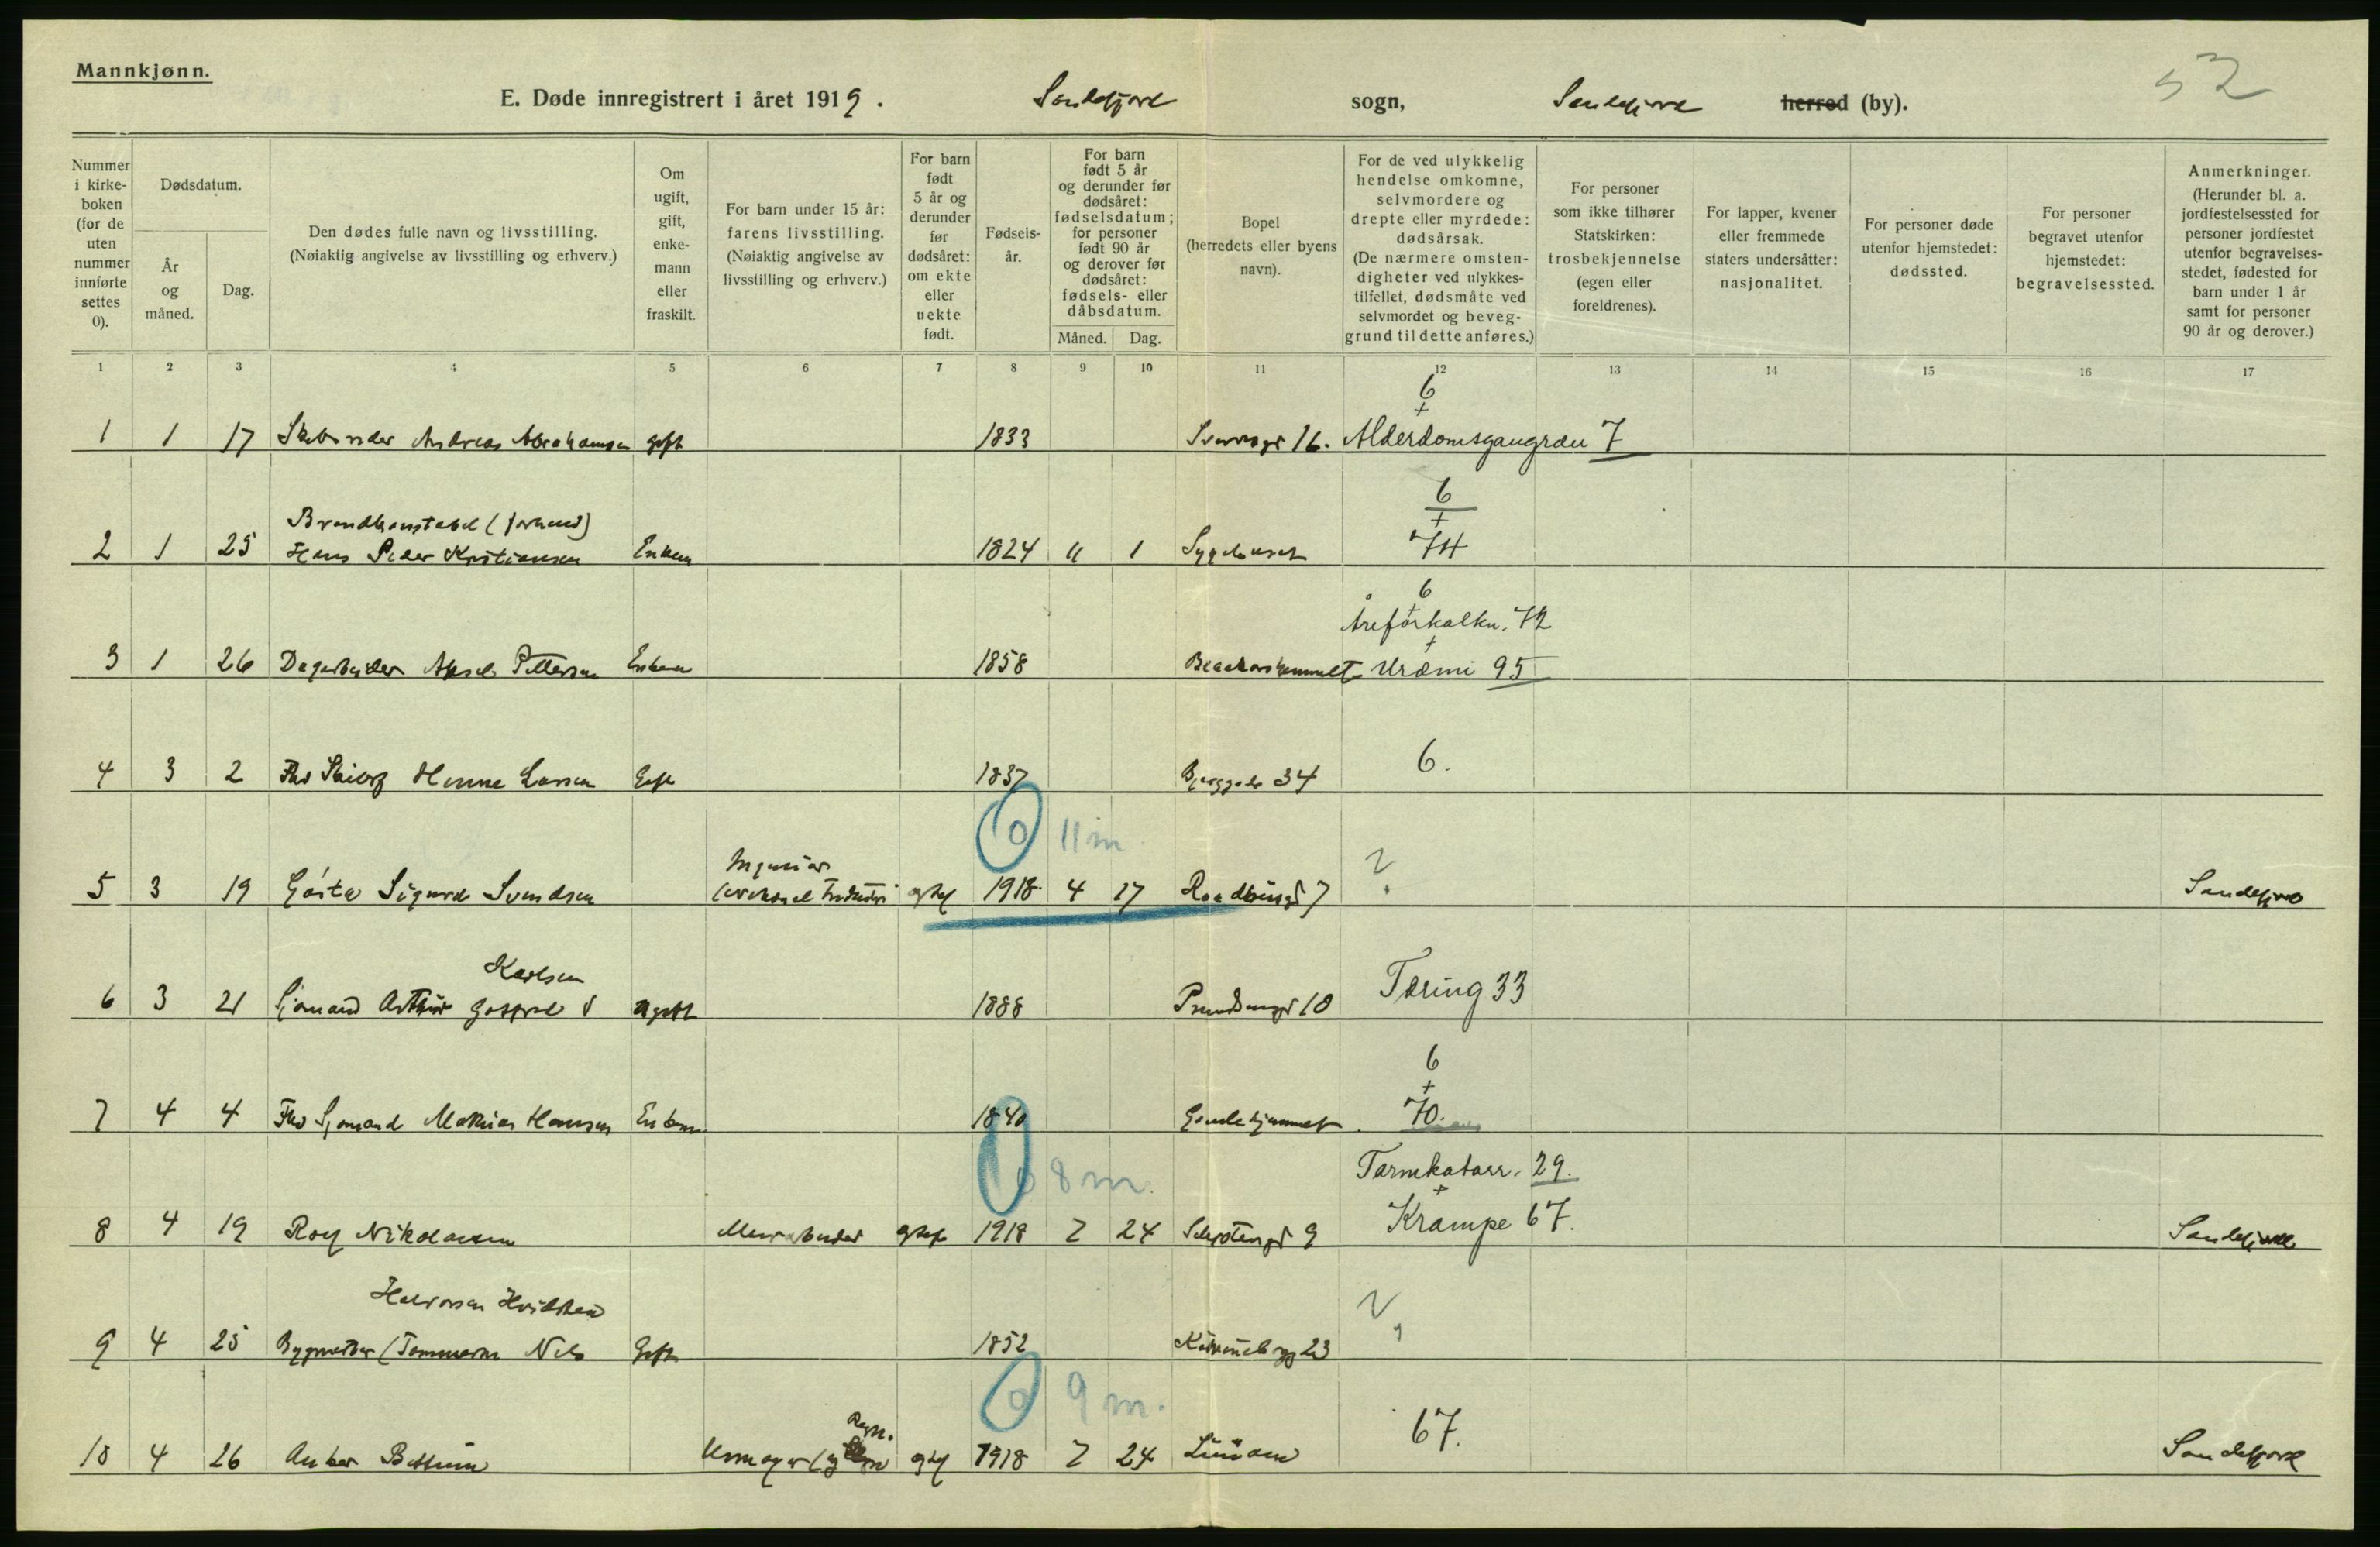 Mannkjønn.
52
E. Døde innregistrert i året 1919. Sandefjord sogn, Sandefjord herred (by).
Nummer i kirkeboken (for de uten nummer innførte settes 0).
Dødsdatum.
År og måned.
Dag.
Den dødes fulle navn og livsstilling.
(Nøiaktig angivelse av livsstilling og erhverv.)
Om ugift, gift, enkemann eller fraskilt.
For barn under 15 år: farens livsstilling.
(Nøiaktig angivelse av livsstilling og erhverv.)
For barn født 5 år og derunder før dødsåret: om ekte eller uekte født.
Fødselsår.
For barn født 5 år og derunder før dødsåret: fødselsdatum; for personer født 90 år og derover før dødsåret: fødsels- eller dåbsdatum.
Måned. Dag.
Bopel (herredets eller byens navn).
For de ved ulykkelig hendelse omkomne, selvmordere og drepte eller myrdede: dødsårsak.
(De nærmere omstendigheter ved ulykkestilfellet, dødsmåte ved selvmordet og beveggrund til dette anføres.)
For personer som ikke tilhører Statskirken: trosbekjennelse (egen eller foreldrenes).
For lapper, kvener eller fremmede staters undersåtter: nasjonalitet.
For personer døde utenfor hjemstedet: dødssted.
For personer begravet utenfor hjemstedet: begravelsessted.
Anmerkninger.
(Herunder bl. a. jordfestelsessted for personer jordfestet utenfor begravelsesstedet, fødested for barn under 1 år samt for personer 90 år og derover.)
1 2 3 4 5 6 7 8 9 10 11 12 13 14 15 16 17
6
+
1 1 17 Andreas Abrahamsen gift 1833 16. Alderdomsgangræn 7
6
+
Brandkonstabel (forhenv)
2 1 25 Hans Peder Kristiansen Enkem 1824 11 1 Sygehuset 74
6
+
Åreforkalkn. 72
+
3 1 26 Dagarbeider Aksel Pettersen Enkem 1858 Uræmi 95
4 3 2 Fhv Larsen Gift 1837 Bjerggade 34 6.
0 11 m.
Ingeniør
5 3 19 Gösta Sigurd Svendsen ægtef 1918 4 17 7 ? Sandefjord
Karlsen
6 3 21 Sjømand Arthur ugift 1888 10 Tæring 33
6
+
7 4 4 Fhv Sjømand Mathias Hansen Enkem 1840 Gamlehjemmet 70.
0 8 m.
Tarmkatarr. 29.
+
8 4 19 Roy Nikolaisen ægtef 1918 7 24 9 Krampe 67. Sandefjord
Halvorsen
9 4 25 Bygmester (Tømmerm Nils Gift 1852 23 ?
0 9 m.
10 4 26 Anker Urmager ægtef 1918 7 24 67. Sandefjord